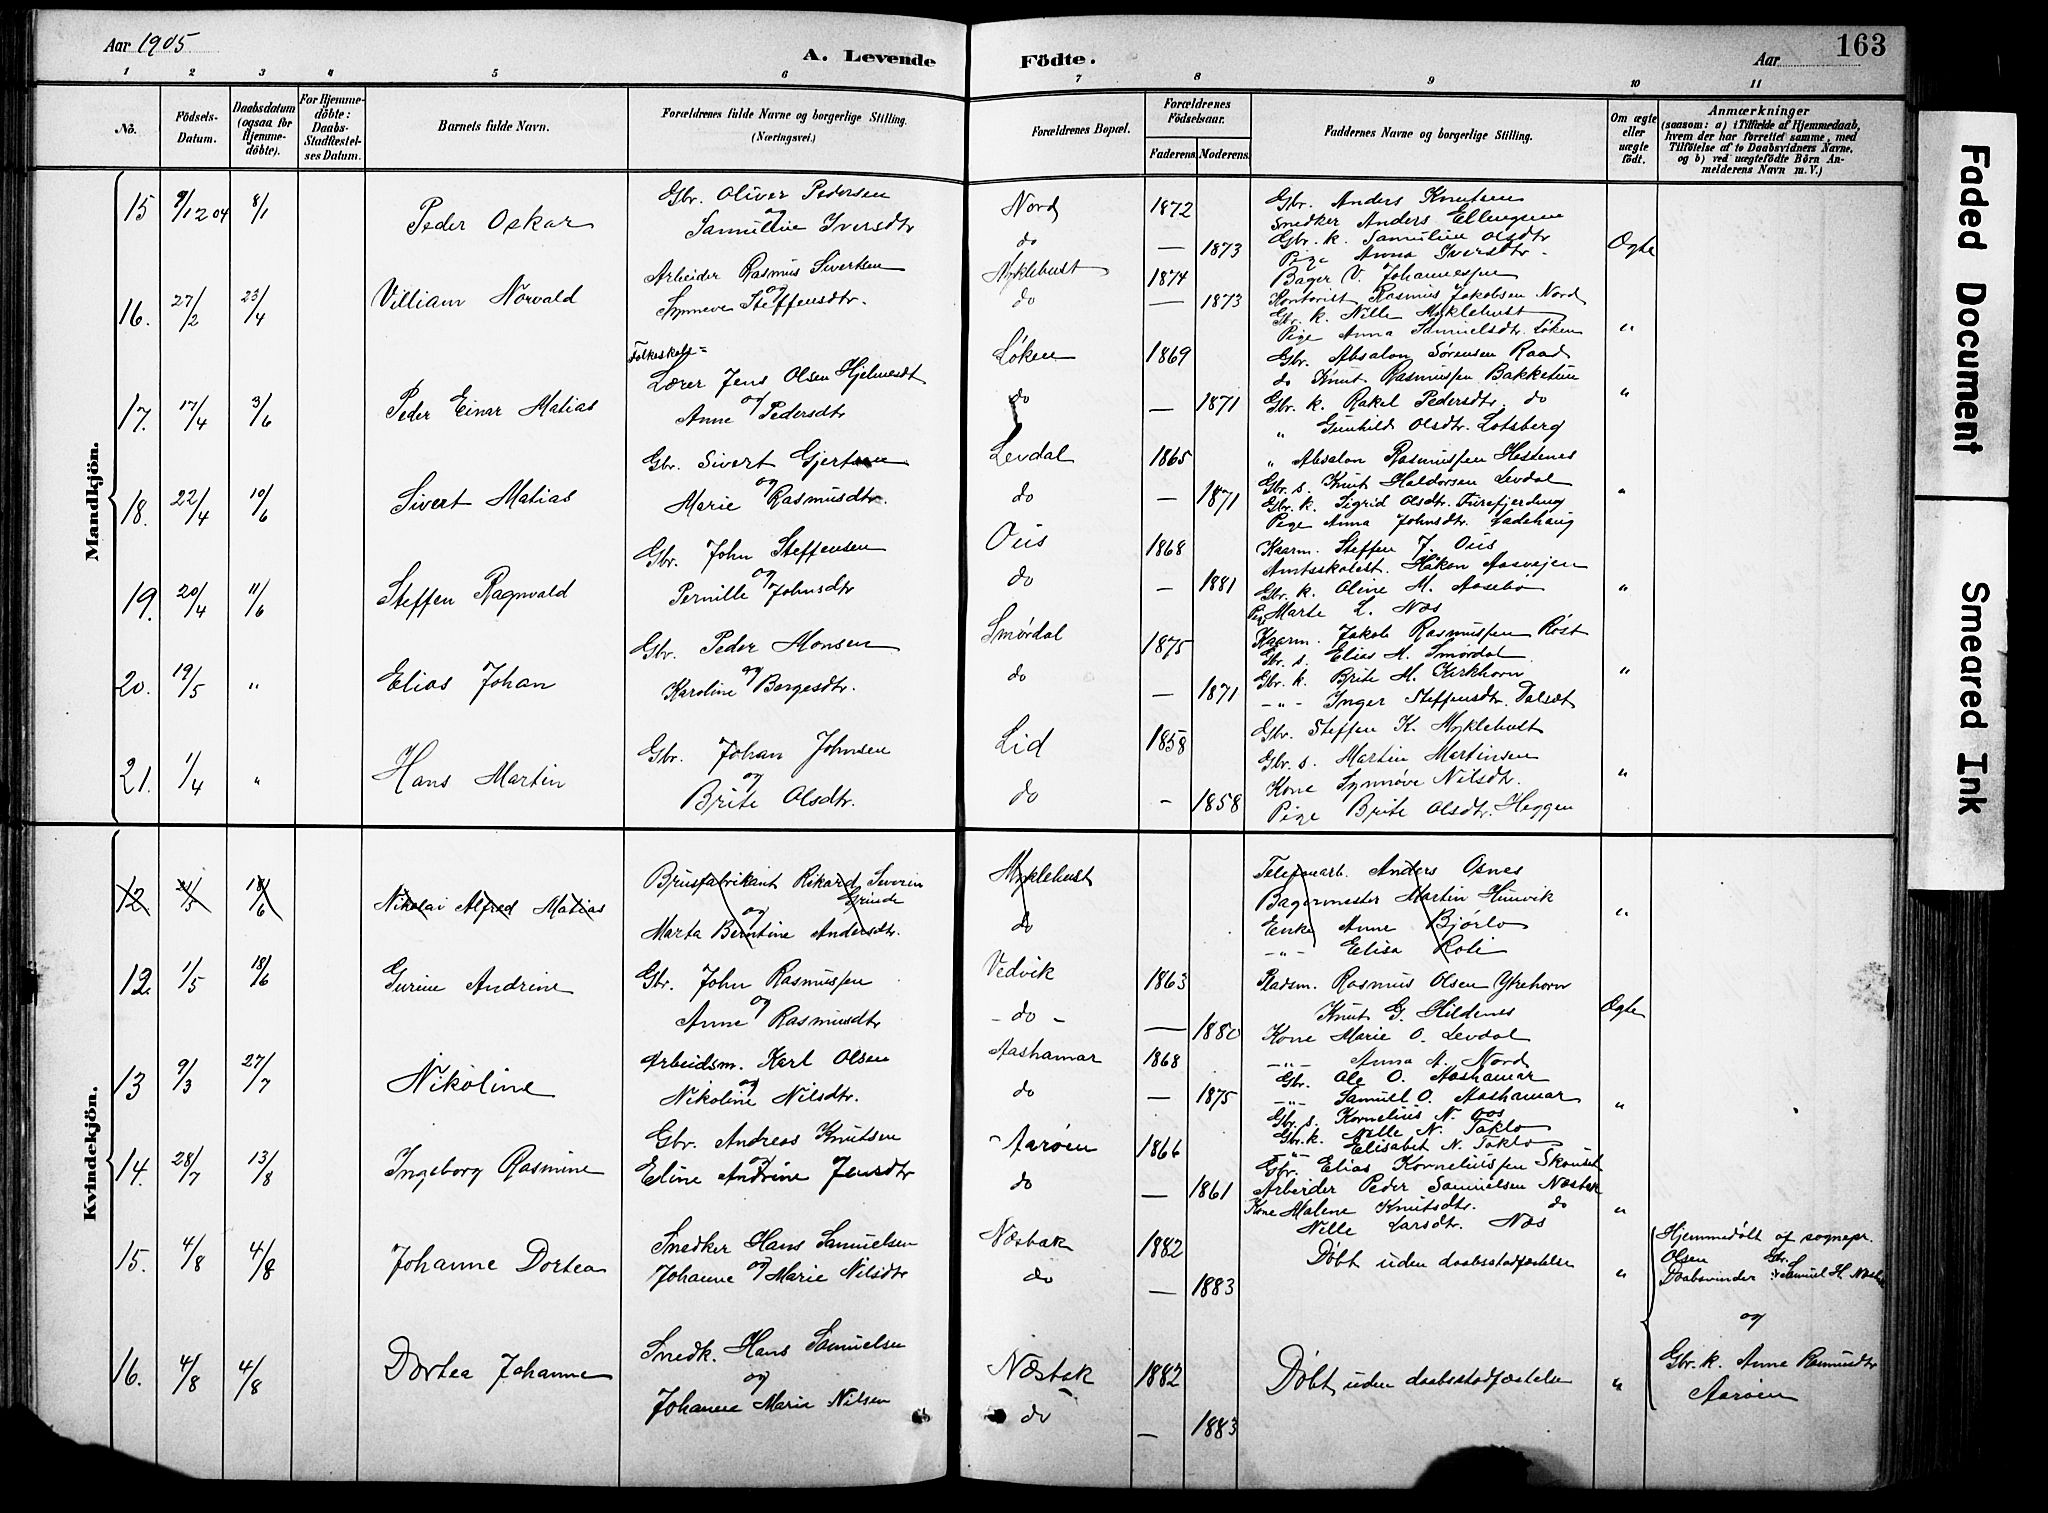 Aar 1905
A. Levende Födte.
Aar
163
1 2 3 4 5 6 7 8 9 10 11
No.
Födsels-Datum.
Daabsdatum (ogsaa for Hjemme-döbte).
For Hjemme-döbte: Daabs-Stadfæstel-ses Datum.
Barnets fulde Navn.
Forældrenes fulde Navne og borgerlige Stilling. (Næringsvei.)
Forældrenes Bopæl.
Forældrenes Födselsaar.
Faderens. Moderens.
Faddernes Navne og borgerlige Stilling.
Om ægte eller uægte födt.
Anmærkninger
(saasom: a) i Tilfælde af Hjemmedaab, hvem der har forrettet samme, med Tilföielse af to Daabsvidners Navne, og b) ved uægtefödte Börn An-melderens Navn m. V.)
Mandkjön.
15 9/12 04 8/1 Peder Oskar
Gbr. Oliver Pedersen
og
Samuline Iversdtr
Nord 1872
do — 1873
Gbr. Anders Knutsen
Snedker Anders Ellingsen
Gbr. k. Samuline Olsdtr
Pige Anna Iversdtr.
Ægte
16. 27/2 23/4 Villiam Norvald
Arbeider Rasmus Sivertsen
og
Synneve Steffensdtr.
Myklebust 1874
do — 1873
Bager V. Johannessen
Kontorist Rasmus Jakobsen Nord
Gbr. k. Nille Myklebust
Pige Anna Samuelsdtr. Løken
"
17. 17/4 3/6 Peder Einar Matias
Folkeskole=
Lærer Jens Olsen Hjelmesdt
og
Anne Pedersdtr
Løken 1869
do — 1871
Gbr. Absalon Sørensen Raad
do Knut Rasmussen Bakketun
Gbr. k. Rakel Pedersdtr. do
" Gunhild Olsdtr. Lotsberg
"
18. 22/4 10/6 Sivert Matias
Gbr. Sivert Gjertsen
og
Marie Rasmusdtr.
Levdal 1865
do — 1871
" Absalon Rasmussen Hessenes
Gbr. s. Knut Haldorsen Levdal
Gbr. k. Sigrid Olsdtr. Furefjerding
Pige Anna Johnsdtr. Ladehaug
"
19. 20/4 11/6 Steffen Ragnvald
Gbr. John Steffensen
og
Pernille Johnsdtr
Ous 1868
do — 1881
Kaarm. Steffen J. Ous
Amtsskolest. Håkon Aasvejen
Gbr. k. Oline M. Aasebø
Pige Marte L. Næs
"
20. 19/5 " Elias Johan
Gbr. Peder Monsen
og
Karoline Borgesdtr.
Smørdal 1875
do — 1871
Kaarm. Jakob Rasmussen Røst
Gbr. s. Elias M. Smørdal
Gbr. k. Brite M. Kirkhorn
— " — Inger Steffensdtr. Dalsdt
"
21. 1/4 " Hans Martin
Gbr. Johan Johnsen
og
Brite Olsdtr.
Lid 1858
do — 1858
Gbr. Steffen K. Myklebust
Gbr. s. Martin Martinsen
Kone Synnøve Nilsdtr.
Pige Brite Olsdtr. Heggen
"
Kvindekjön.
12 21/5 18/6 Nikolai Alfred Matias
Brusfabrikant Rikard Severin Grinde
og
Marta Berntine Andersdtr.
Myklebust
do
Telefonarb. Anders Osnes
Bagermester Martin Hunvik
Enke Anne Bjørlo
— " — Elisa Roti
"
12. 1/5 18/6 Gurine Andrine
Gbr. John Rasmussen
og
Anne Rasmusdtr
Vedvik 1863
— do — — 1880
Pladsm. Rasmus Olsen Ytrehorn
Knut G. Hildenes
Kone Marie O. Levdal
— " — Anna A. Nord
Ægte
13 9/3 27/7 Nikoline
Arbeidsm. Karl Olsen
og
Nikoline Nilsdtr.
Aashamar 1868
do — 1875
Gbr. Ole O. Aashamar
— " — Samuel O. Aashamar
Gbr. s. Kornelius N. Oos
Gbr. k. Nille N. Taklo
— " — Elisabet N. Taklo
"
14. 28/7 13/8 Ingeborg Rasmine
Gbr. Andreas Knutsen
og
Eline Andrine Jensdtr
Aarøen 1866
do — 1861
Gbr. Elias Korneliussen Skonset
Arbeider Peder Samuelsen Næsbak
Kone Malene Knutsdtr. do
Nille Larsdtr. Næs
"
15. 4/8 4/8 Johanne Dortea
Snedker Hans Samuelsen
og
Johanne Marie Nilsdtr
Næsbak 1882
do — 1883
Døbt uden daabsstadfæstelse
"
Hjemmedøbt af sognepr.
Olsen
Daabsvinder: Gbr. Samuel H Næsbak
og
Gbr. k. Anne Rasmusdtr
Aarøen
16. 4/8 4/8 Dortea Johanne
Snedk. Hans Samuelsen
og
Johanne Marie Nilsen
Næsbak 1882
do — 1883
Døbt uden daabsstadfæstelse
"
Faded Document
Smeared Ink